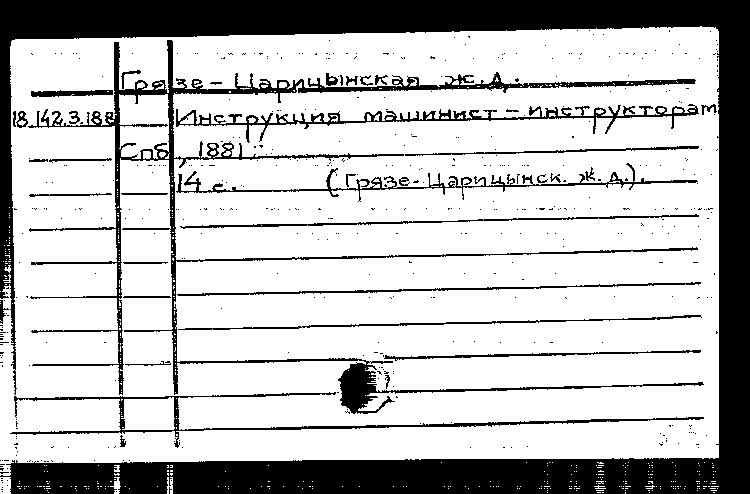 Грязе-Царицынская ж.д.
18.142.3.188 Инструкция машинист-инструкторам
Спб, 1881.
14 с. (Грязе-Царицынск. ж.д.).